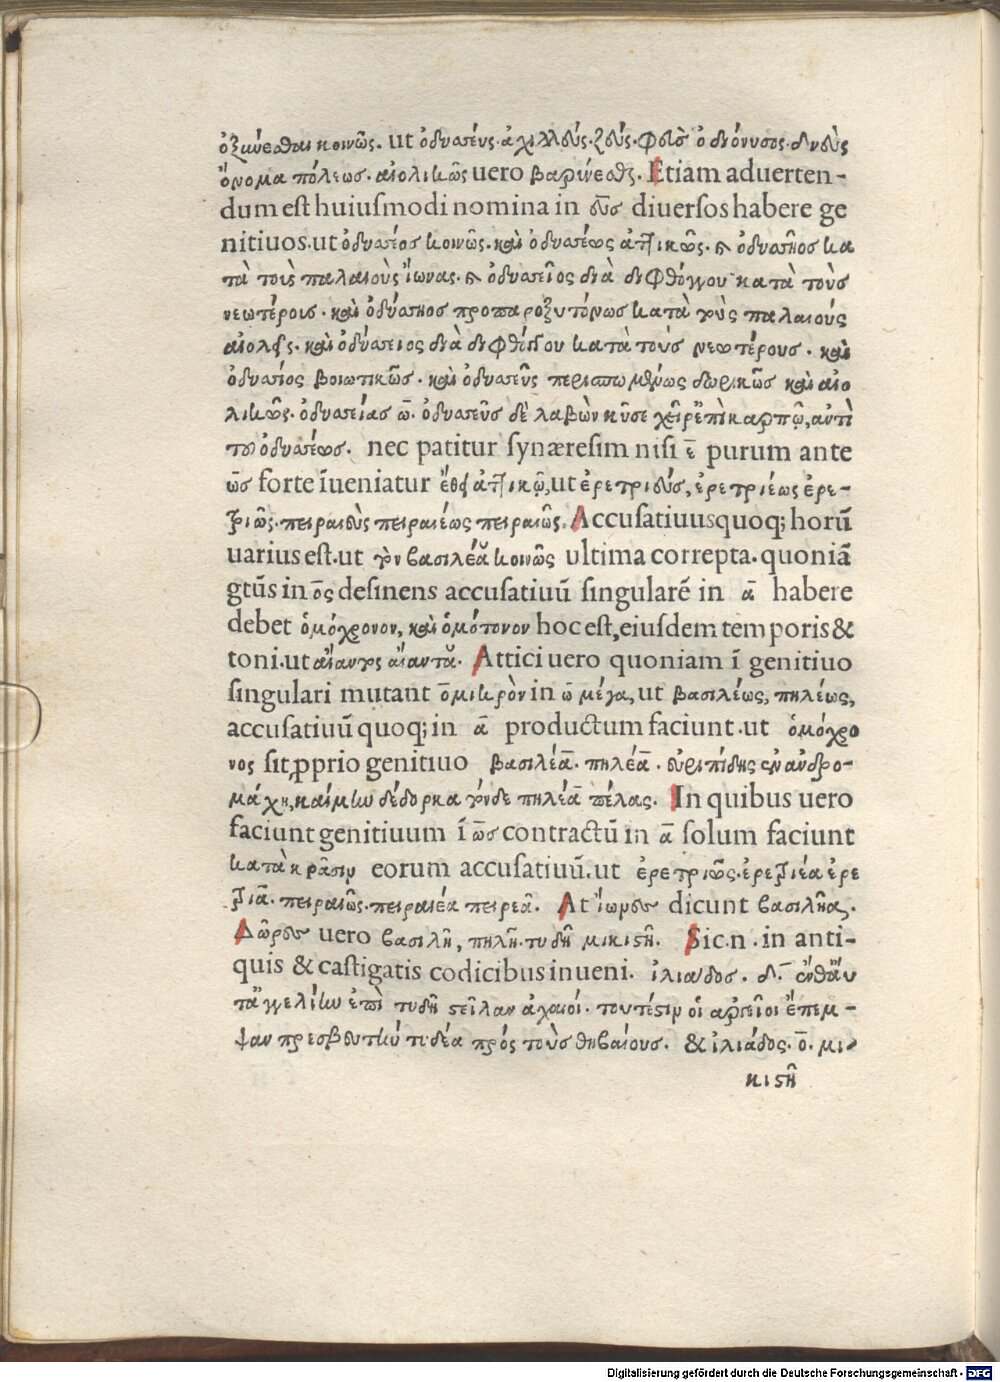 ὀξύνεσθαι κοινῶς. ut ὀδυασεύς. ἀχιλλεύς. ζεύς. φθεὶς ὁ διόνυσος. δνεὺς
ὄνομα πόλεως. αἰολικῶς uero βαρύνεσθαι. Etiam aduerten-
dum est huiuſmodi nomina in εὺς diuerſos habere ge
nitiuos. ut ὀδυασέος κοινῶς. καὶ ὀδυασέως ἀττικῶς. & ὀδυασῆος κα
τὰ τοὺς παλαιοὺς ἴωνας. & ὀδυασεῖος διὰ διφθόγγου κατὰ τοὺς
νεωτέροις. καὶ ὀδύασηος προπαροξυτόνως κατὰ τοὺς παλαιούς
αἰολεῖς. καὶ ὀδύασειος διὰ διφθόγγου κατὰ τοὺς νεωτέρους. καὶ
ὀδυασίος βοιωτικῶς. καὶ ὀδυασεῦς περισπωμένως δωρικῶς καὶ αἰο
λικῶς. ὀδυασείας ω̄. ὀδυασεῦς δὲ λαβὼν κῦσε χεῖρ' ἐπὶ καρπῷ, αὐτὶ
τοῦ ὀδυασέως. nec patitur ſynæreſim niſi ε̄ purum ante
ω̄ς forte īueniatur ἔθει ἀττικῷ, ut ἐρετριεύς, ἐρετριέως ἐρε-
τριῶς. πειραιεὺς πειραιέως πειραιῶς. Accuſatiuus quoq; horū
uarius eſt. ut τὸν βασιλέα κοινῶς ultima correpta. quoniā
gtūs in ος deſinens accuſatiuū ſingularē in ᾱ habere
debet ὁμόχρονον, καὶ ὁμότονον hoc eſt, eiuſdem temporis &
toni. ut αἴαντος αἴαντα. Attici uero quoniam ī genitiuo
ſingulari mutant ο̄ μικρὸν in ω̄ μέγα, ut βασιλέως, πηλέως,
accuſatiuū quoq; in ᾱ productum faciunt. ut ὁμόχρο
νος ſit ꝓprio genitiuo βασιλέᾱ. πηλέᾱ. εὐριπίδης ἐν ἀνδρο-
μάχῃ, καὶ μὴν δέδορκα τόνδε πηλέᾱ πέλας. In quibus uero
faciunt genitiuum ī ω̄ς contractū in ᾱ ſolum faciunt
κατὰ κρᾶσιν eorum accuſatiuū. ut ἐρετριῶς. ἐρετριέα ἐρε
τριᾶ. πειραιῶς. πειραιέα πειρεᾶ. At ἴωνες dicunt βασιλῆα.
Δωρεῖς uero βασιλῆ, πηλῆ. τυδῆ μικιςῆ. Sic.n. in anti-
quis & caſtigatis codicibus inueni. ἰλιάδος. δ̄. ἔνθ' αὖτ'
ἀγγελίην ἐπὶ τυδῆ ςεῖλαν ἀχαιοί. τουτέςιν οἱ ἀργεῖοι ἔπεμ-
ψαν πρεσβευτὴν τυδέα πρὸς τοὺς θηβαίους. & ἰλιάδος. ο̄. μι-
κιςῆ
Digitalisierung gefördert durch die Deutsche Forschungsgemeinschaft - DFG